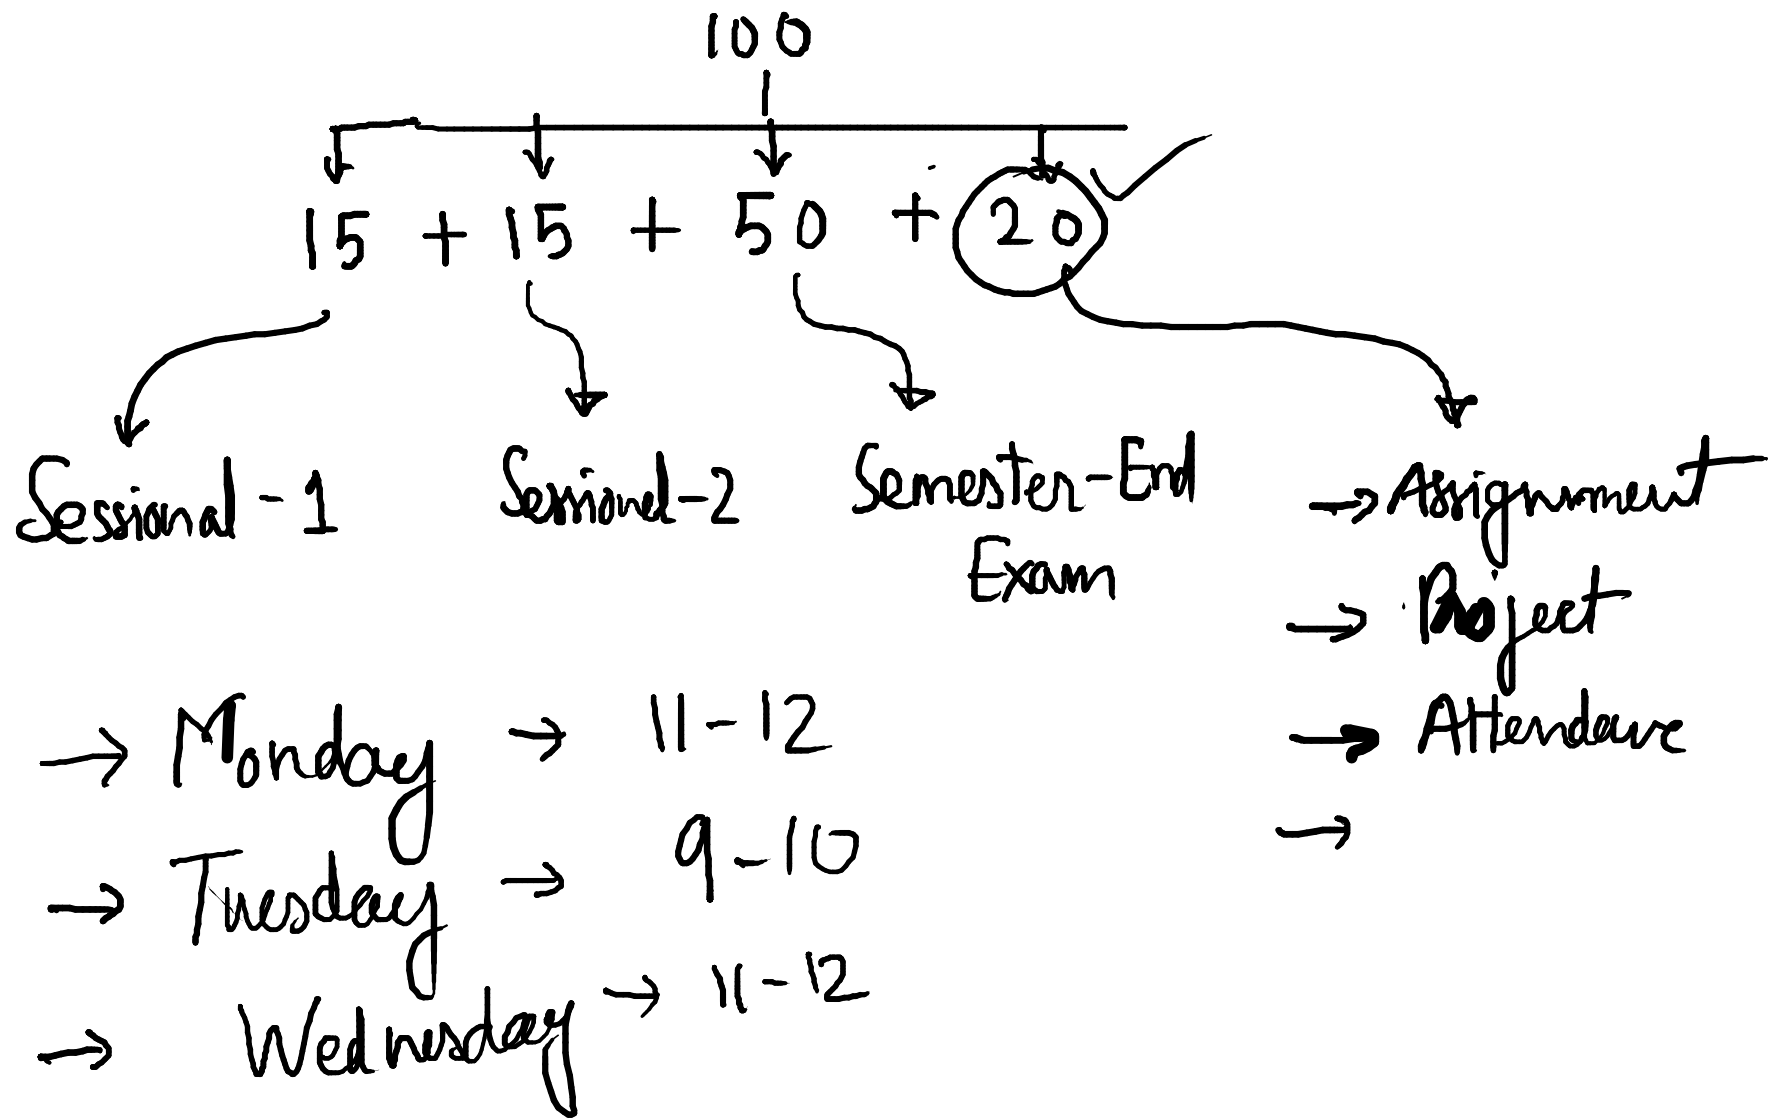 100
15 + 15 + 50 + 20
Sessional - 1
Sessional - 2
Semester - End
Exam
→ Assignment
→ Project
→ Attendance
→
→ Monday → 11 - 12
→ Tuesday → 9 - 10
→ Wednesday → 11 - 12